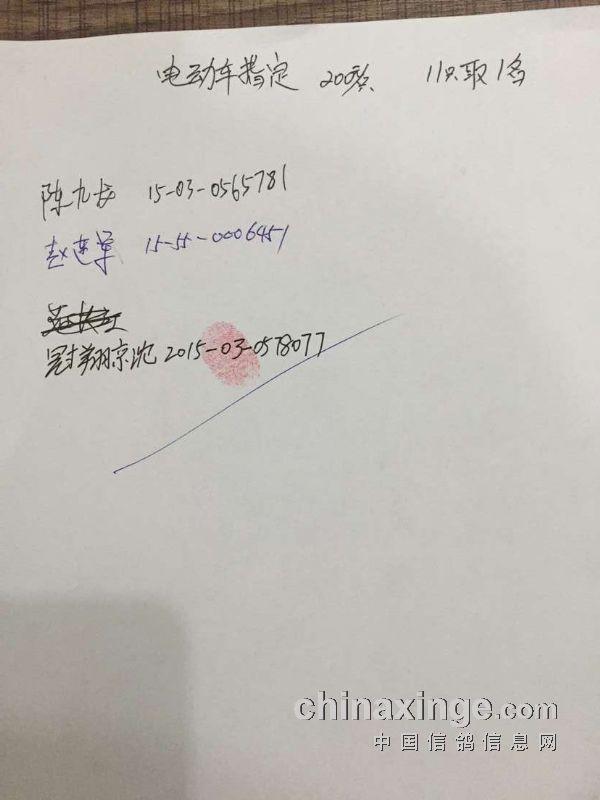 电动车指定 200元 11只取1名
陈九长 15-03-0565781
赵连军 15-55-0006451
冠翔京沈 2015-03-0578077
chinaxinge.com
中国信鸽信息网